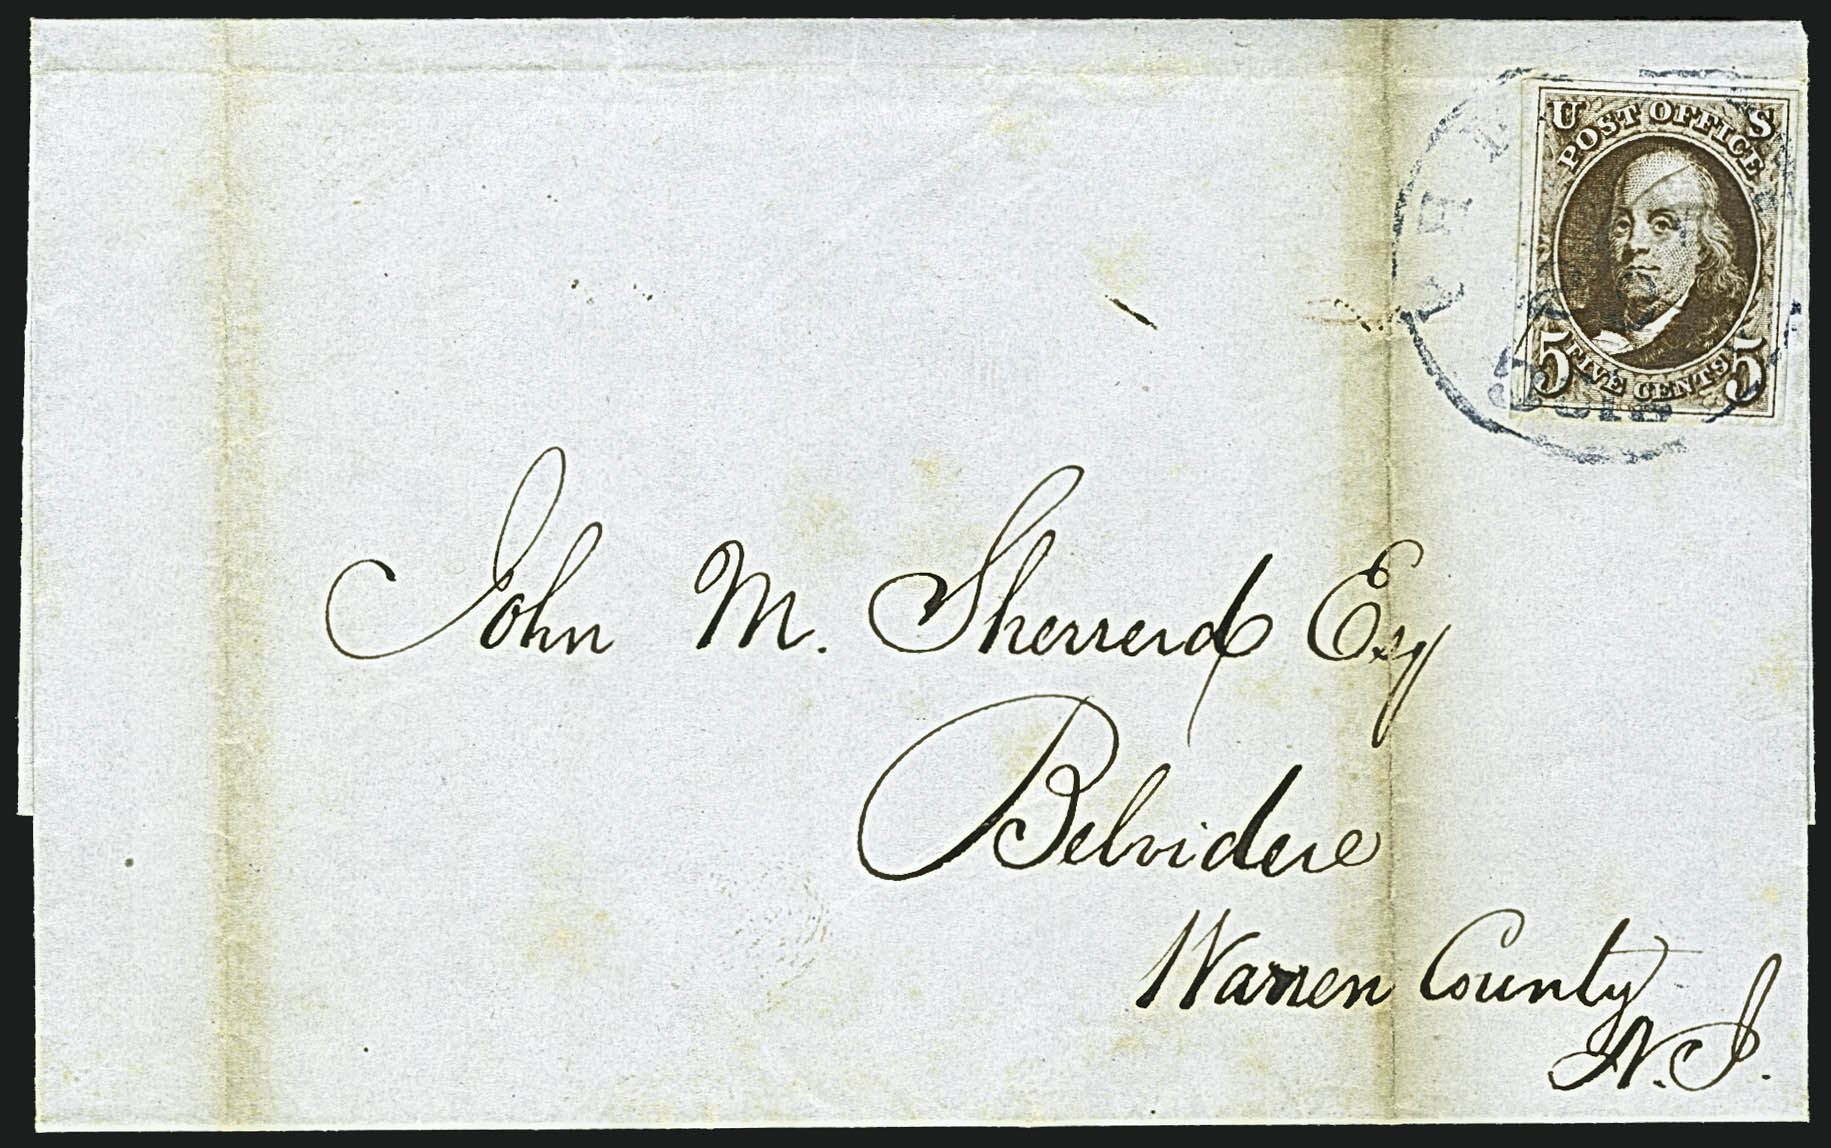 U S
POST OFFICE
5 FIVE CENTS 5
John M. Sherrerd Esq
Belvidere
Warren County
N. J.